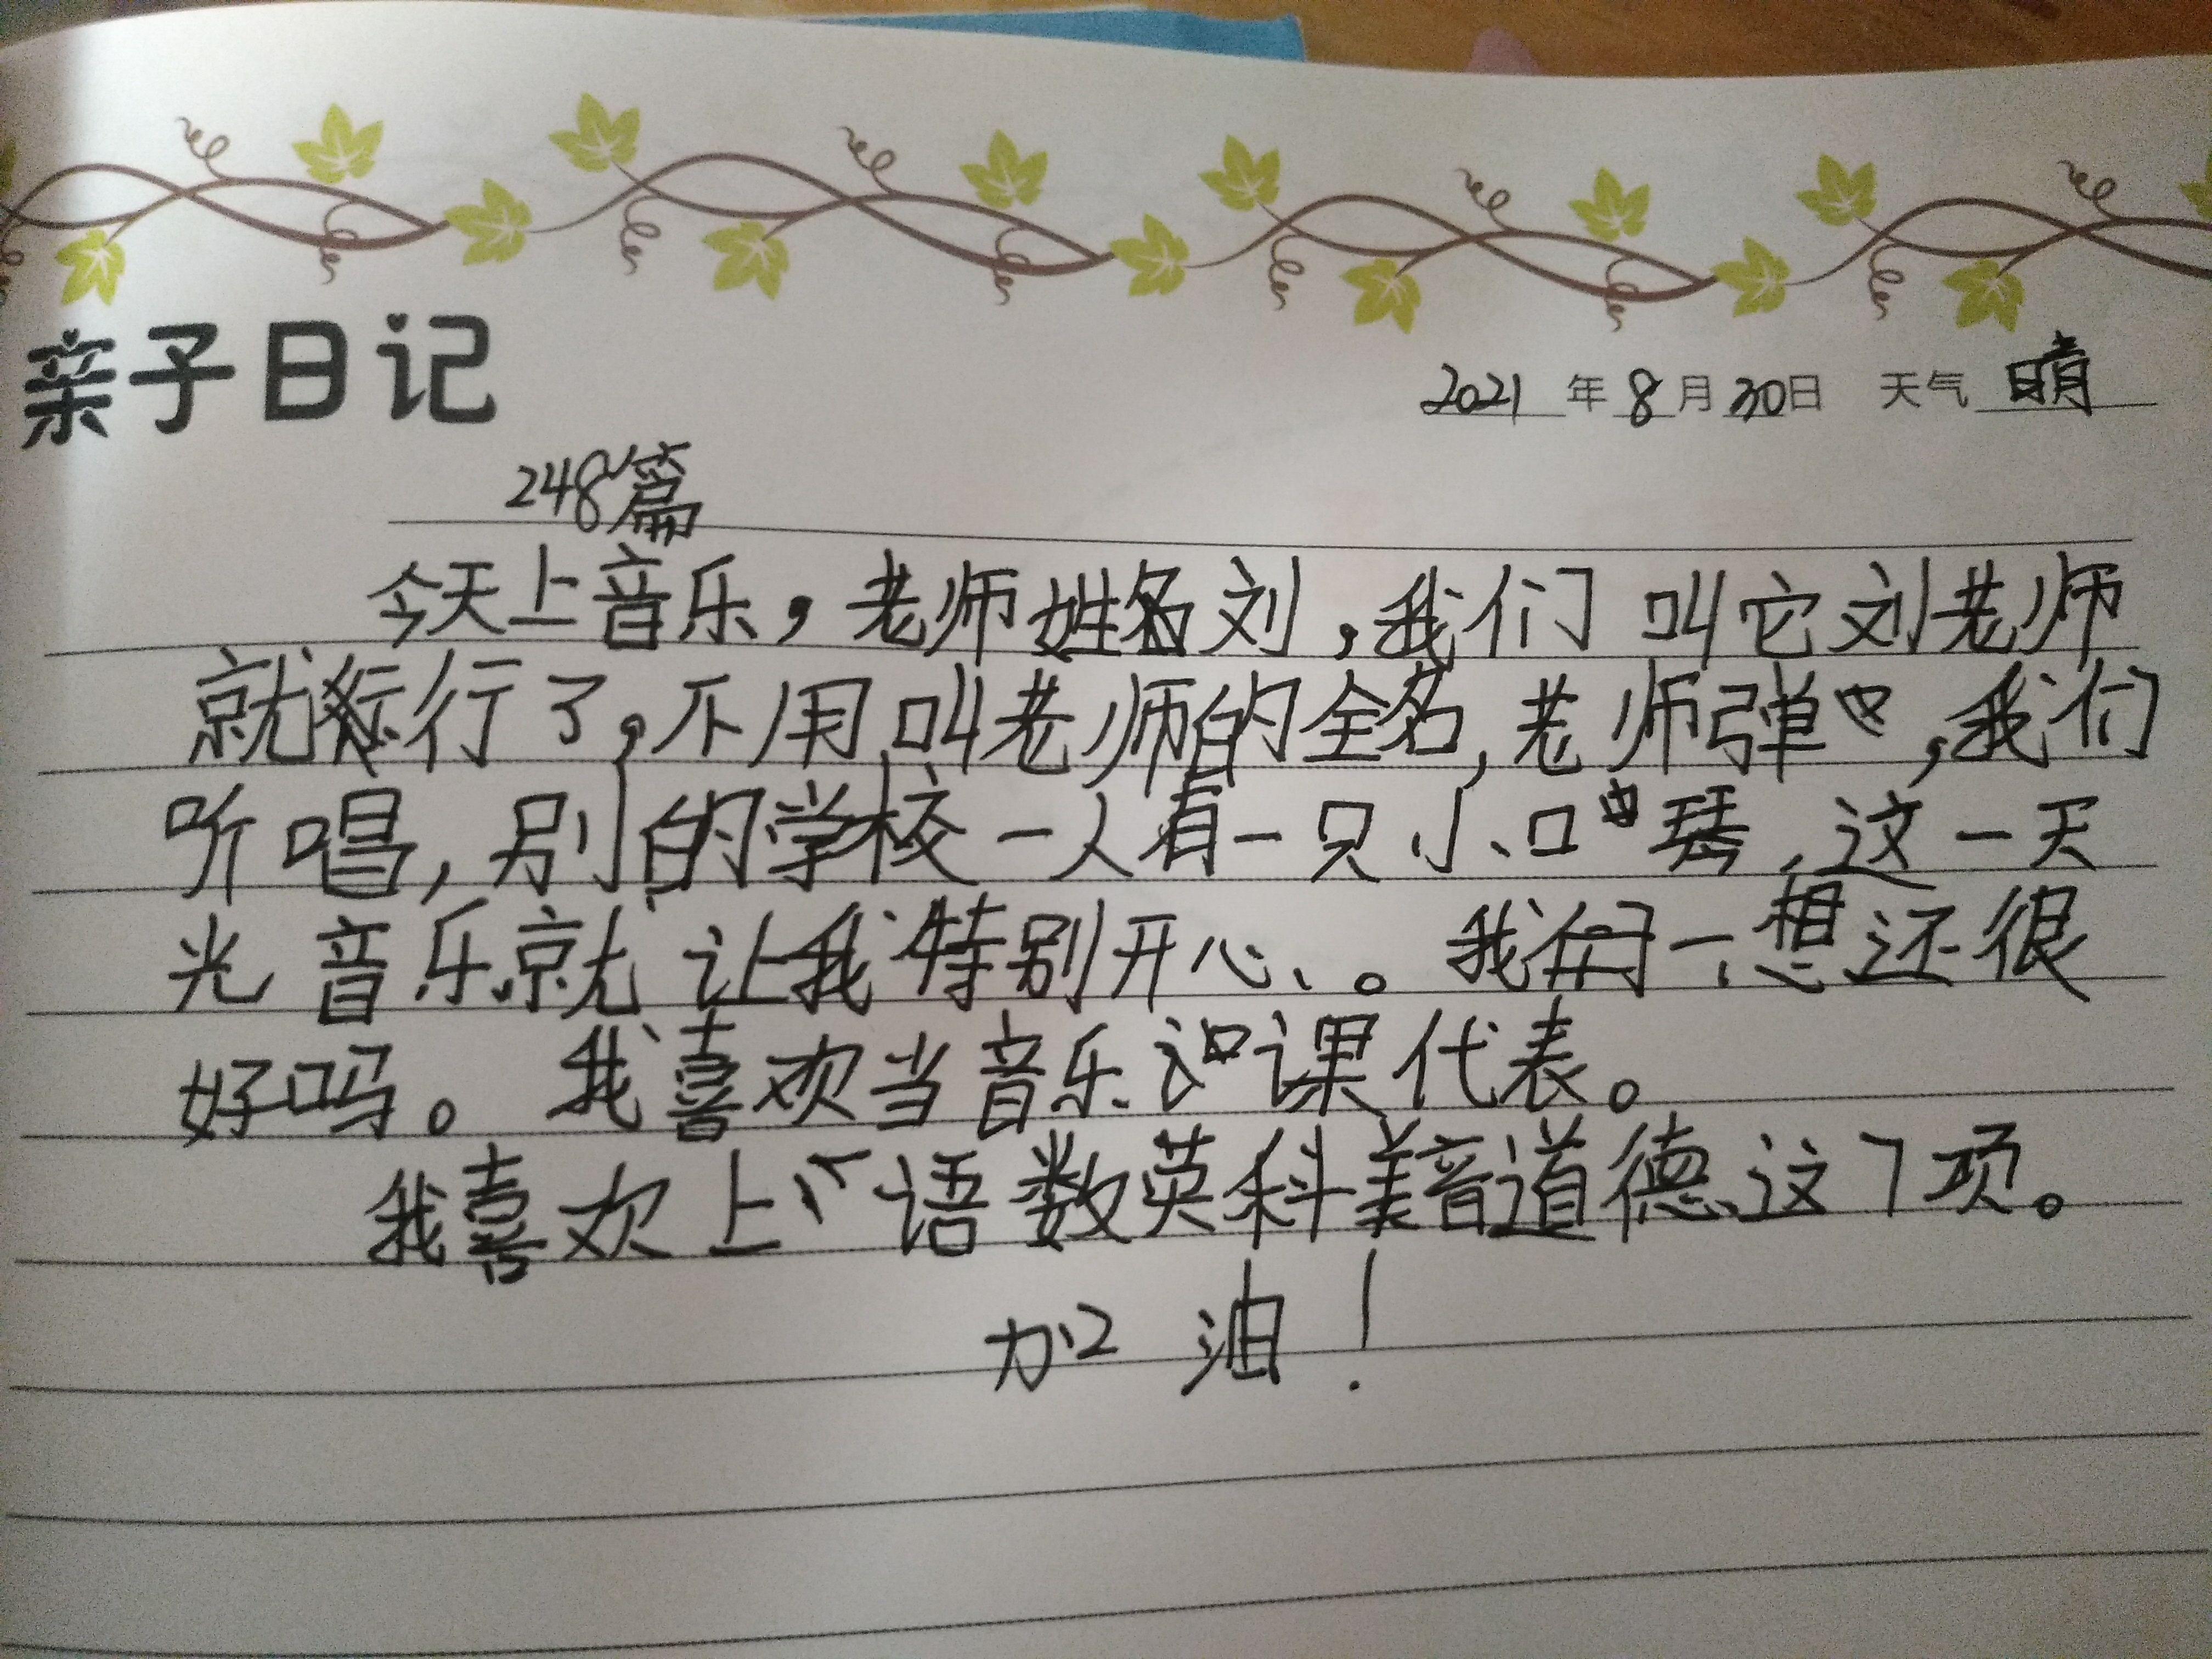 亲子日记
2021年8月30日 天气 晴
248篇
今天上音乐，老师姓刘，我们叫它刘老师
就行了，不用叫老师的全名，老师弹，我们
听唱，别的学校一人有一只小口琴，这一天
光音乐就让我特别开心。我们一想还很
好吗。我喜欢当音乐课代表。
我喜欢上语数英科美音道德这7项。
加油！